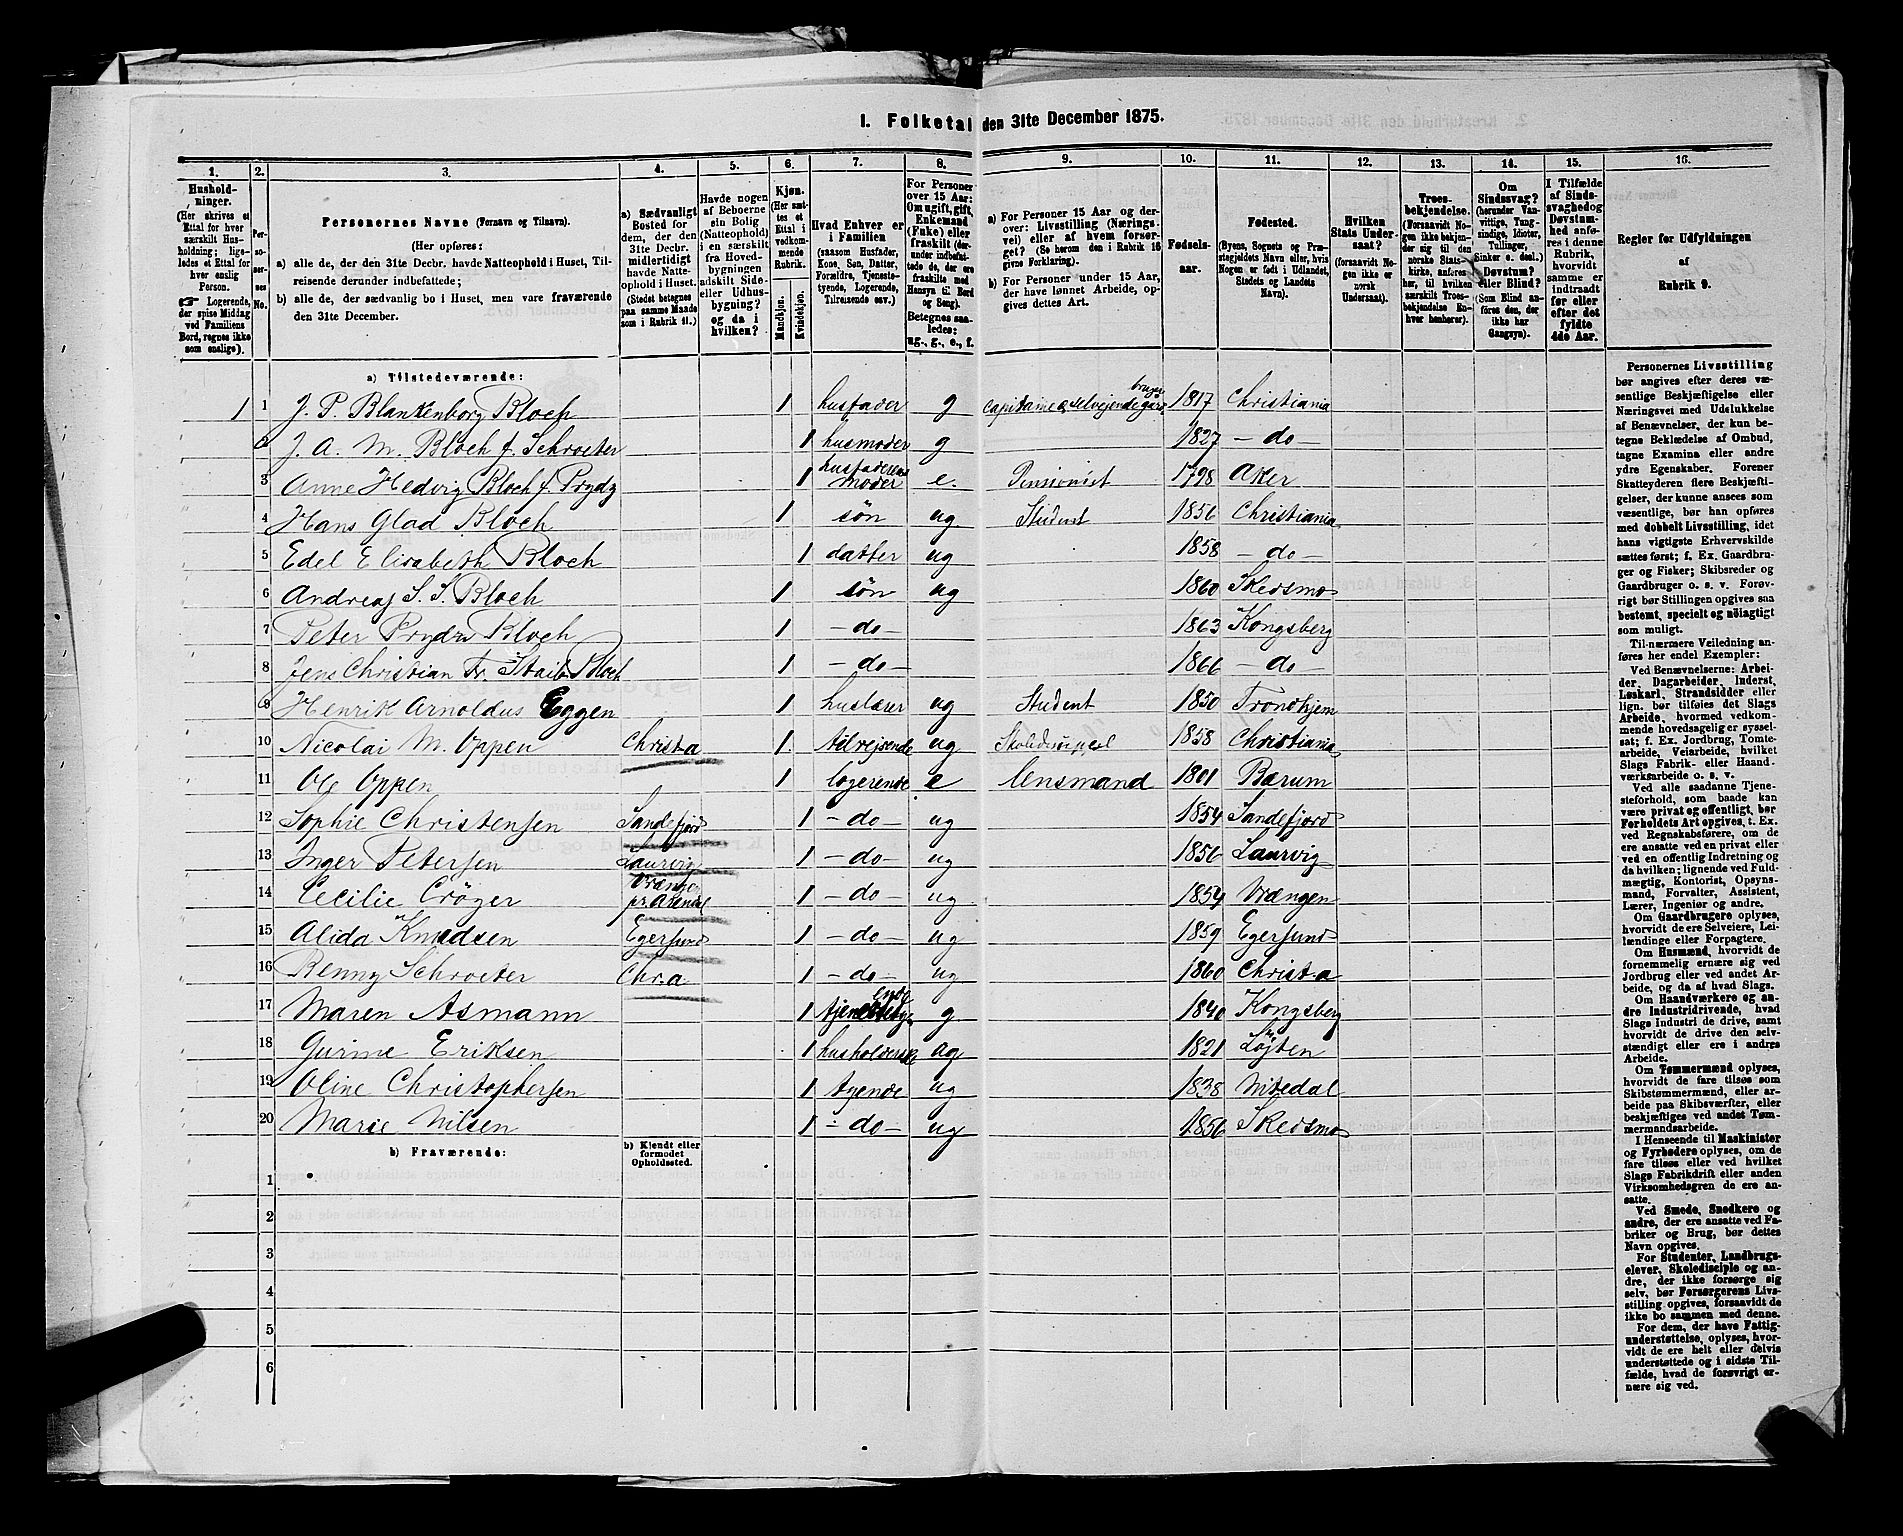 1. Folketal den 31te December 1875.
1. 2. 3. 4. 5. 6. 7. 8. 9. 10. 11. 12. 13. 14. 15. 16.
Hushold-
ninger.
(Her skrives et
Ettal for hver
særskilt Hus-
holdning; lige-
ledes et Ettal for
hver enslig
Person.
☛ Logerende,
der spise Middag
ved Familiens
Bord, regnes ikke
som enslige).
Personernes Navne (Fornavn og Tilnavn).
(Her opføres:
a) alle de, der den 31te Decbr. havde Natteophold i Huset, Til-
reisende derunder indbefattede;
b) alle de, der sædvanlig bo i Huset, men vare fraværende
den 31te December.
a) Sædvanligt
Bosted for
dem, der den
31te Decbr.
midlertidigt
havde Natte-
ophold i Huset.
(Stedet betegnes
paa samme Maade
som i Rubrik 11.)
Havde nogen
af Beboerne
sin Bolig
(Natteophold)
i en særskilt
fra Hoved-
bygningen
adskilt Side-
eller Udhus-
bygning?
og da i
hvilken?
Kjøn.
(Her sæt-
tes et
Ettal i
vedkom-
mende
Rubrik.
Mandkjøn.
Kvindekjøn.
Hvad Enhver er
i Familien
(saasom Husfader,
Kone, Søn, Datter,
Forældre, Tjeneste-
tyende, Logerende,
Tilreisende osv.)
For Personer
over 15 Aar:
Om ugift, gift,
Enkemand
(Enke) eller
fraskilt
Betegnes saa-
ledes:
ug., g., e., f.
a) For Personer 15 Aar og der-
over: Livsstilling (Nærings-
vei) eller af hvem forsør-
get? (Se herom den i Rubrik 16
givne Forklaring).
b) For Personer under 15 Aar,
der have lønnet Arbeide, op-
gives dettes Art.
Fødsels-
aar.
Fødested.
(Byens, Sognets og Præ-
stegjeldets Navn eller, hvis
Nogen er født i Udlandet,
Stedets og Landets
Navn).
Hvilken
Stats Under-
saat?
(forsaavidt No-
gen ikke er
norsk
Undersaat).
Troes-
bekjendelse.
(Forsaavidt No-
gen ikke bekjen-
der sig til den
norske Stats-
kirke, anføres
her, til hvilken
særskilt Troes-
bekjendelse En-
hver henhører).
Om
Sindssvag?
(herunder Van-
vittige, Tung-
sindige, Idioter,
Tullinger,
Sinker o. desl.)
Døvstum?
eller Blind?
(Som Blind an-
føres den, der
ikke har
Gangsyn).
I Tilfælde
af Sinds-
svaghed og
Døvstum-
hed anfø-
res i denne
Rubrik,
hvorvidt
samme er
indtraadt
før eller
efter det
fyldte
4de Aar.
Regler for Udfyldningen
af
Rubrik 9.
a) Tilstedeværende:
1 1 J. P. Blankenborg Bloch 1 husfader g Capitaine & selvejende gaardbruger 1817 Christiania
2 J. A. M. Bloch f. Schroeter 1 husmoder g 1827 – do –
3 Anne Hedvig Bloch f. Prydz 1 husfaderens moder e. Pensionist 1798 Aker
4 Hans Glad Bloch 1 søn ug Student 1856 Christiania
5 Edel Elisabeth Bloch 1 datter ug 1858 – do –
6 Andreas S. S. Bloch 1 søn ug 1860 Skedsmo
7 Peter Prydz Bloch 1 – do – 1863 Kongsberg
8 Jens Christian Fr. Bloch 1 – do – 1866 – do –
9 Henrik Arnoldus Eggen 1 huslærer ug Student 1850 Trondhjem
10 Nicolai M. Oppen Christ.a 1 tilrejsende ug Skoledisipel 1858 Christiania
11 Ole Oppen 1 logerende e lensmand 1801 Bærum
12 Sophie Christensen Sandefjord 1 – do – ug 1854 Sandefjord
13 Inger Petersen Laurvig 1 – do – ug 1856 Laurvig
14 Cecilie Crøger Vrænge pr. Arendal 1 – do – ug 1854 Vrængen
15 Alida Knudsen Egersund 1 – do – ug 1859 Egersund
16 Benny Schroeter Chr.a 1 – do – ug 1860 Christ.a
17 Maren Asmann 1 g 1840 Kongsberg
18 Gurine Eriksen 1 husholderske ug 1821 Løjten
19 Oline Christophersen 1 tyende ug 1838 Nitedal
20 Marie Nilsen 1 – do – ug 1856 Skedsmo
b) Fraværende:
b) Kjendt eller
formodet
Opholdssted.
1
2
3
4
5
6
Personernes Livsstilling
bør angives efter deres væ-
sentlige Beskjæftigelse eller
Næringsvei med Udelukkelse
af Benævnelser, der kun be-
tegne Beklædelse af Ombud,
tagne Examina eller andre
ydre Egenskaber. Forener
Skatteyderen flere Beskjæfti-
gelser, der kunne ansees som
væsentlige, bør han opføres
med dobbelt Livsstilling, idet
hans vigtigste Erhvervskilde
sættes først; f. Ex. Gaardbru-
ger og Fisker; Skibsreder og
Gaardbruger o. s. v. Forøv-
rigt bør Stillingen opgives saa
bestemt, specielt og nøiagtigt
som muligt.
Til nærmere Veiledning an-
føres her endel Exempler:
Ved Benævnelserne: Arbei-
der, Dagarbeider, Inderst,
Løskarl, Strandsidder eller
lign. bør tilføies det Slags
Arbeide, hvormed vedkom-
mende hovedsagelig er syssel-
sat; f. Ex. Jordbrug, Tomte-
arbeide, Veiarbeide, hvilket
Slags Fabrik- eller Haand-
værksarbeide o. s. v.
Ved alle saadanne Tjene-
steforhold, som baade kan
være privat og offentligt, bør
Forholdets Art opgives, t. Ex.
ved Regnskabsførere, om de
ere ansatte ved en privat eller
ved en offentlig Indretning og
da hvilken; lignende ved Fuld-
mægtig, Kontorist, Opsyns-
mand, Forvalter, Assistent,
Lærer, Ingeniør og andre.
Om Gaardbrugere oplyses,
hvorvidt de ere Selveiere, Lei-
lændinge eller Forpagtere.
Om Husmænd, hvorvidt de
fornemmelig ernære sig ved
Jordbrug eller ved andet Ar-
beide, og da af hvad Slags.
Om Haandværkere og an-
dre Industridrivende, hvad
Slags Industri de drive, samt
hvorvidt de drive den selv-
stændigt eller ere i andres
Arbeide.
Om Tømmermænd oplyses,
hvorvidt de fare tilsøs som
Skibstømmermænd, eller ar-
beide paa Skibsværfter, eller
beskjæftiges ved andet Tøm-
mermandsarbeide.
I Henseende til Maskinister
og Fyrbødere oplyses, om de
fare tilsøs eller ved hvilket
Slags Fabrikdrift eller anden
Virksomhedsgren de ere an-
satte.
Ved Smede, Snedkere og
andre, der ere ansatte ved Fa-
briker og Brug, bør dettes
Navn opgives.
For Studenter, Landbrugs-
elever, Skoledisciple og an-
dre, der ikke forsørge sig
selv, bør Forsørgerens Livs-
stilling opgives, forsaavidt de
ikke bo sammen med denne.
For dem, der have Fattig-
understøttelse, oplyses, hvor-
vidt de ere helt eller delvis
understøttede og i sidste Til-
fælde, hvad de forøvrigt er-
nære sig ved.